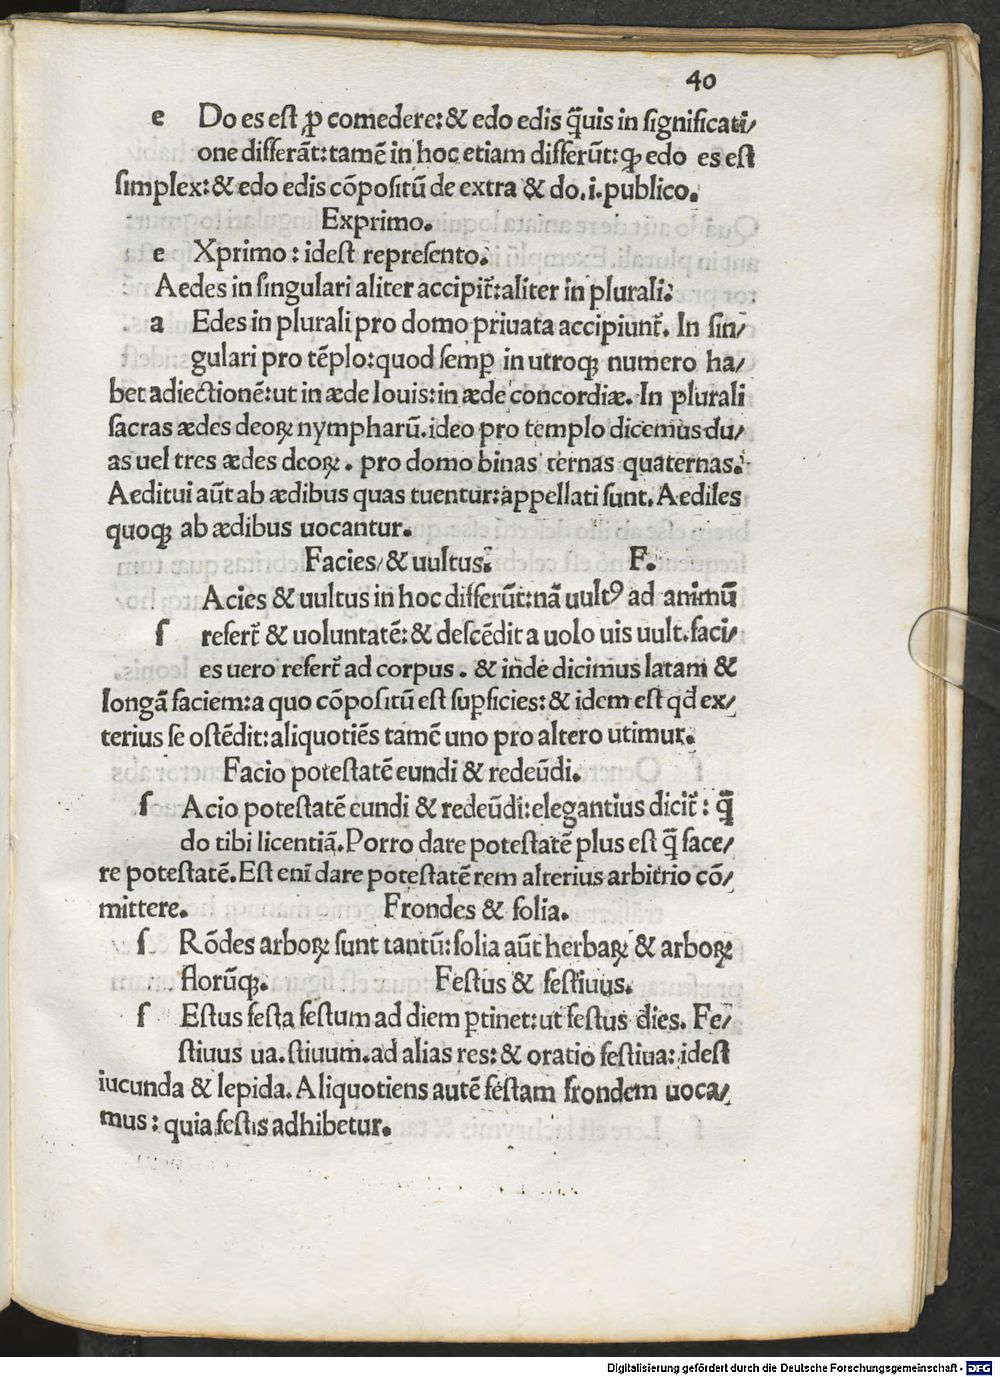 40
e Do es eſt ꝓ comedere: & edo edis q̃uis in ſignificati/
one differãt: tamẽ in hoc etiam differũt: ꝙ edo es eſt
ſimplex: & edo edis cõpoſitũ de extra & do .i. publico.
Exprimo.
e Xprimo: ideſt repreſento.
Aedes in ſingulari aliter accipit̃: aliter in plurali.
a Edes in plurali pro domo priuata accipiunt̃. In ſin/
gulari pro tẽplo: quod ſemꝑ in utroqꝫ numero ha/
bet adiectionẽ: ut in æde Iouis: in æde concordiæ. In plurali
ſacras ædes deoꝝ nympharũ. ideo pro templo dicemus du/
as uel tres ædes deoꝝ. pro domo binas ternas quaternas.
Aeditui aũt ab ædibus quas tuentur: appellati ſunt. Aediles
quoqꝫ ab ædibus uocantur.
Facies/ & uultus. F.
Acies & uultus in hoc differũt: nã uultꝰ ad animũ
f refert̃ & uoluntatẽ: & deſcẽdit a uolo uis uult. faci/
es uero refert̃ ad corpus. & inde dicimus latam &
longã faciem: a quo cõpoſitũ eſt ſuꝑficies: & idem eſt qd̃ ex/
terius ſe oſtẽdit: aliquotiẽs tamẽ uno pro altero utimur.
Facio poteſtatẽ eundi & redeũdi.
f Acio poteſtatẽ eundi & redeũdi: elegantius dicit̃: q̃
do tibi licentiã. Porro dare poteſtatẽ plus eſt q̃ face/
re poteſtatẽ. Eſt eni dare poteſtatẽ rem alterius arbitrio cõ/
mittere. Frondes & folia.
f Rõdes arboꝝ ſunt tantũ: folia aũt herbaꝝ & arboꝝ
florũqꝫ. Feſtus & feſtiuus.
f Eſtus feſta feſtum ad diem ꝑtinet: ut feſtus dies. Fe/
ſtiuus ua. ſtiuum. ad alias res: & oratio feſtiua: ideſt
iucunda & lepida. Aliquotiens autẽ feſtam frondem uoca/
mus: quia feſtis adhibetur.
Digitalisierung gefördert durch die Deutsche Forschungsgemeinschaft - DFG